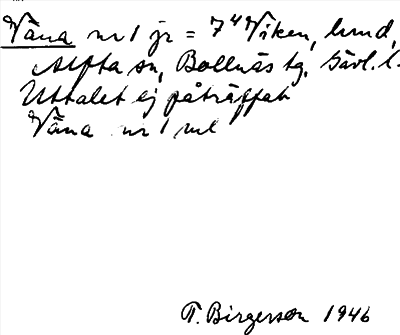 Våna nr 1 jr = 7⁴ Viken, lund,
Alfta sn, Bollnäs tg. Gävl. l.
Uttalet ej påträffat
Våna nr 1 ml
T. Birgerson 1946